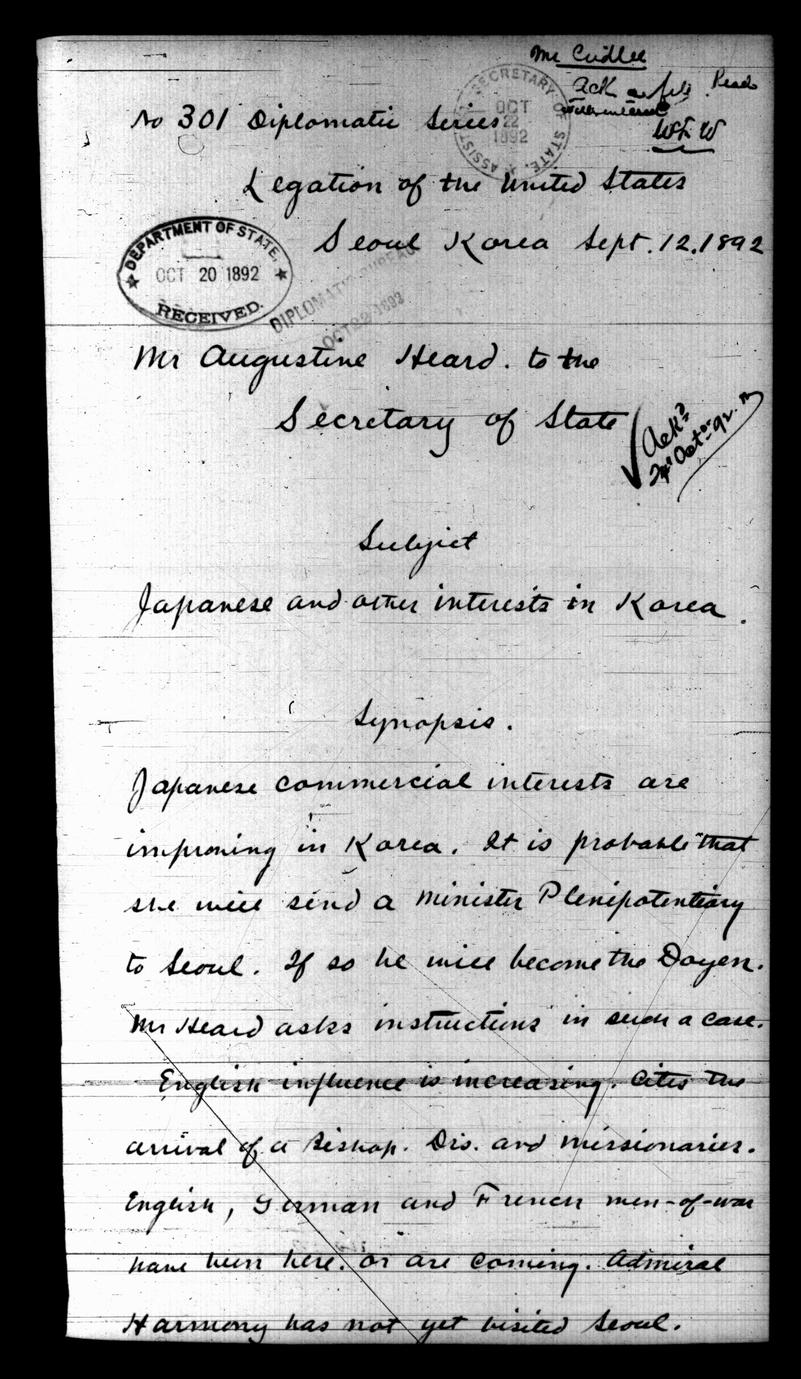 Mr Cridler
Ack & file Read
W F W
No 301 Diplomatic Series
ASSIST. SECRETARY OF STATE, OCT 22 1892
Legation of the United States
Seoul Korea Sept. 12. 1892
DEPARTMENT OF STATE, OCT 20 1892 RECEIVED.
DIPLOMATIC BUREAU OCT 22 1892
Mr Augustine Heard. to the
Secretary of State
Ackd
24 Octr 92.
Subject
Japanese and other interests in Korea.
Synopsis.
Japanese commercial interests are
improving in Korea. It is probable that
she will send a Minister Plenipotentiary
to Seoul. If so he will become the Doyen.
Mr Heard asks instructions in such a case.
English influence is increasing. Cites the
arrival of a Bishop. Drs. and missionaries.
English, German and French men-of-war
have been here. or are coming. Admiral
Harmony has not yet visited Seoul.